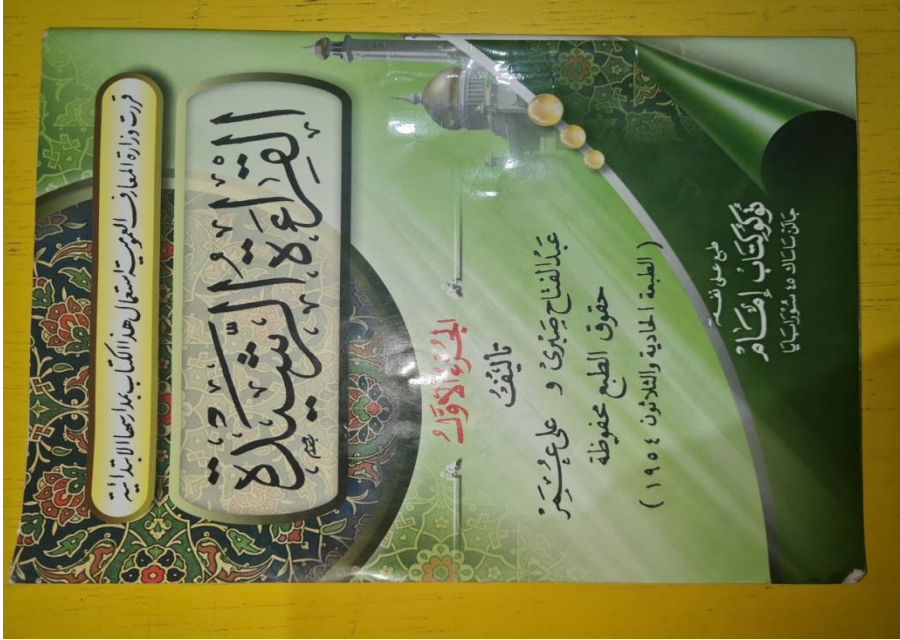 قررت وزارة المعارف العمومية استعمال هذا الكتاب بمدارسها الابتدائية
القِرَاءَةُ الرَّشِيْدَة
الجزء الأوّل
تأليف
عبد الفتاح صبري و علي عُمَر
حقوق الطبع محفوظة
( الطبعة الحادية والثلاثون ١٩٥٤ )
طبع على نفسة
توكو كتاب إمام
جالن ساساك ٤٥ سورابايا